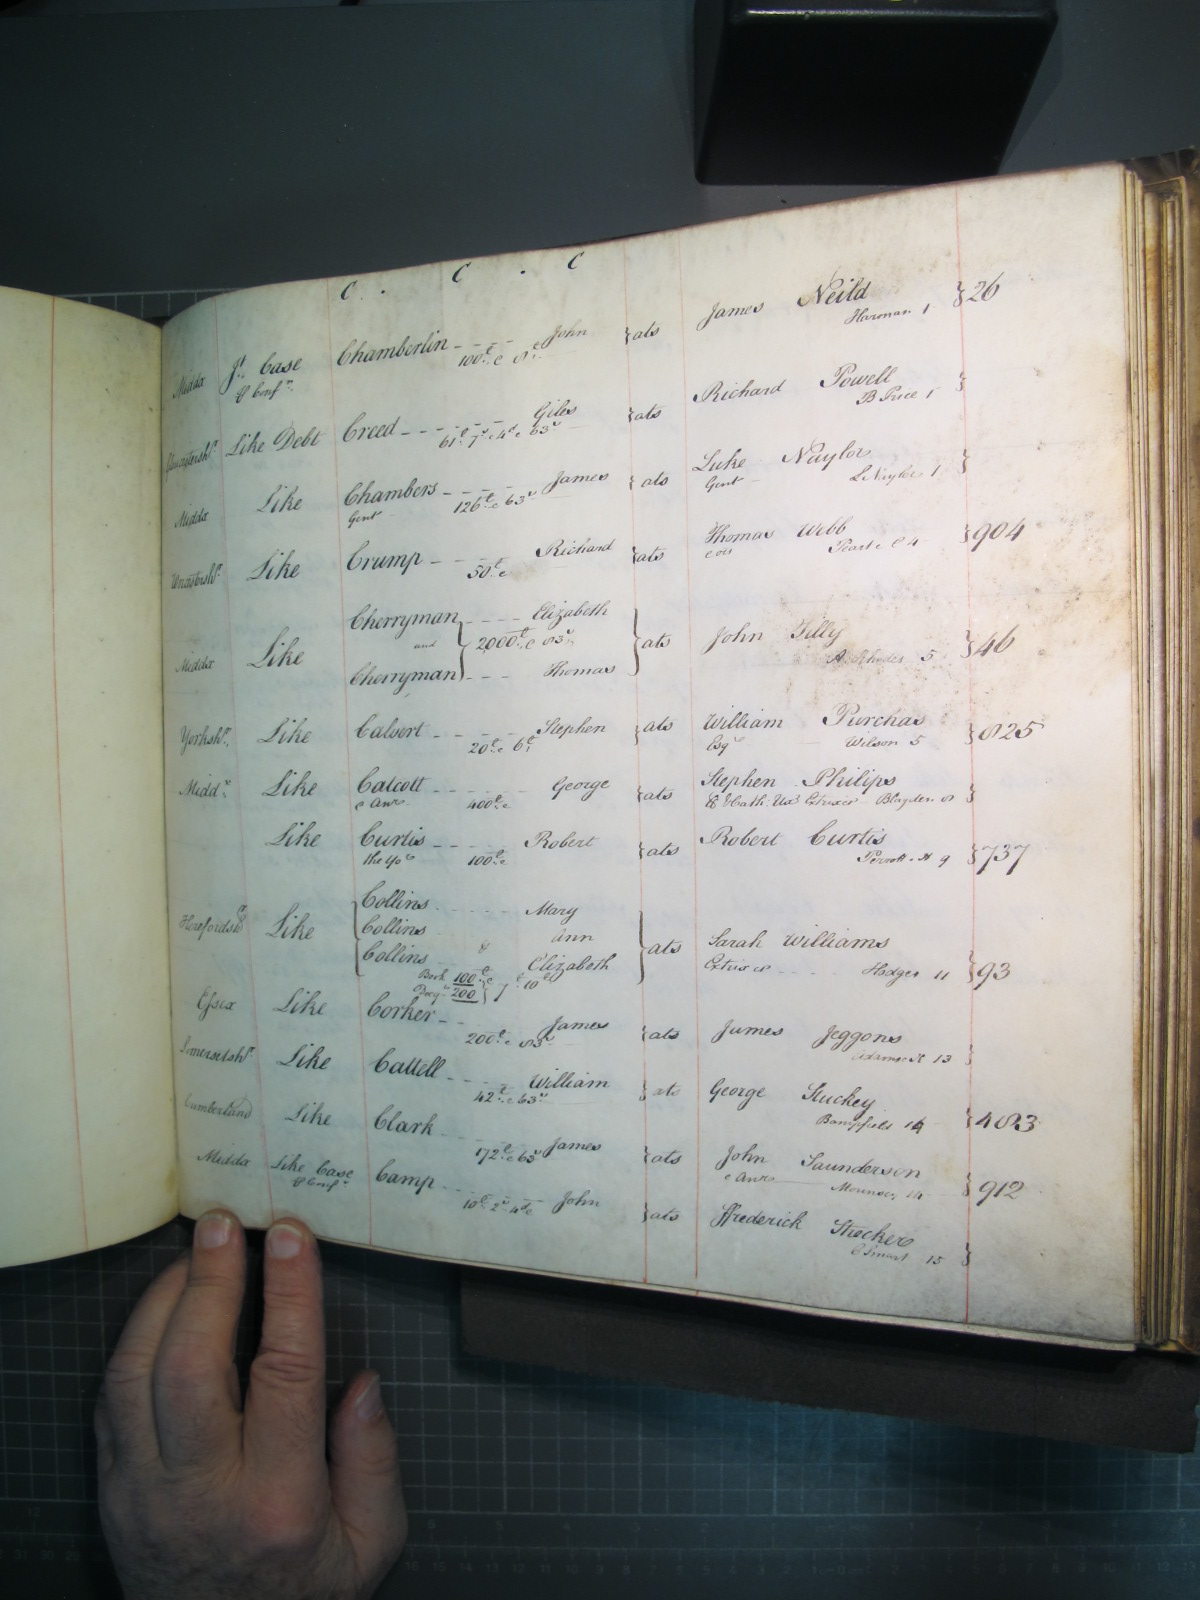 C . C . C
Middx Jt. Case Chamberlin John } ats James Neild } 26
of Conf.n 100£ & 8£ Harman 1
Gloucestersh.r Like Debt Creed Giles } ats Richard Powell }
61£ 7s 4d & 63s B Price 1
Middx Like Chambers James } ats Luke Naylor }
Gent 126£ & 63s Gent L Naylor 1
Worcestersh.r Like Crump Richard } ats Thomas Webb } 904
50£ & 4
Cherryman Elizabeth
Middx Like and 2000£ & 83s } ats John Tilly } 46
Cherryman Thomas A. Rhodes 5
Yorksh.r Like Calvert Stephen } ats William Purchas } 825
20£ & 6£ Esq.r Wilson 5
Midd.x Like Calcott George } ats Stephen Philips }
& Anr 400£ & Cath: Ux.r Extrix &c Blayden 8
Like Curtis Robert } ats Robert Curtis } 737
the yo.r 100£ Perrott H 9
Collins Mary
Herefordsh.r Like Collins Ann
Collins & Elizabeth } ats Sarah Williams } 93
100£ Extrix &c Hodges 11
200 } 7£ 10s
Essex Like Corker James } ats James Jeggons }
200£ & 83s Adams 13
Somersetsh.r Like Cattell William } ats George Stuckey } 483
42£ & 63s Bampfield 14
Cumberland Like Clark James } ats John Saunderson } 912
172£ & 63s & Anr Mounsey 14
Middx Like Case Camp John } ats Frederick Strecker }
of Conf.n 10£ 2s 4d & C Smart 15